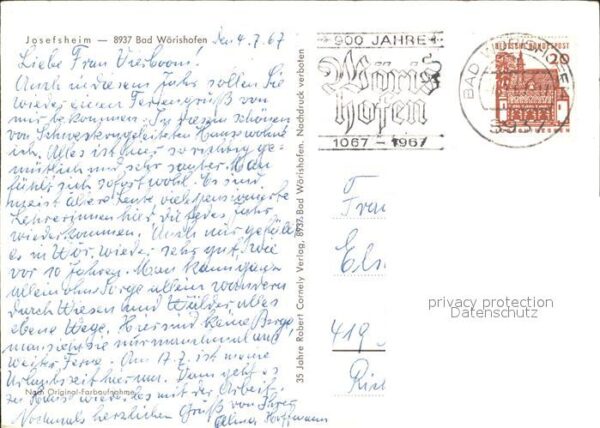 Josefsheim — 8937 Bad Wörishofen
den 4.7.67
Liebe Frau Vierboom!
Auch in diesem Jahr sollen Sie
wieder einen Feriengruß von
mir bekommen. In diesem schönen
von Schwestern geleiteten Haus wohne
ich. Alles ist hier so richtig ge-
mütlich und sehr sauber. Man
fühlt sich sofort wohl. Es sind
meist ältere Leute, viele pensionierte
Lehrerinnen hier, die jedes Jahr
wiederkommen. Auch mir gefällt
es in Wör. wieder sehr gut, wie
vor 10 Jahren. Man kann ganz
allein ohne Sorge allein wandern
durch Wiesen und Wälder, alles
ebene Wege. Hier sind keine Berge,
man sieht sie nur manchmal aus
weiter Ferne. Am 17.7. ist meine
Urlaubszeit hier um. Dann geht es
zu Hause wieder los mit der Arbeit.
Nochmals herzlichen Gruß von Ihrer
Hoffmann
Nach Original-Farbaufnahme
35 Jahre Robert Cornely Verlag, 8937 Bad Wörishofen. Nachdruck verboten
900 JAHRE
Wöris
hofen
1067 - 1967
BAD WÖRISHOFEN
8937
DEUTSCHE BUNDESPOST
20
Frau
Els
419
privacy protection
Datenschutz